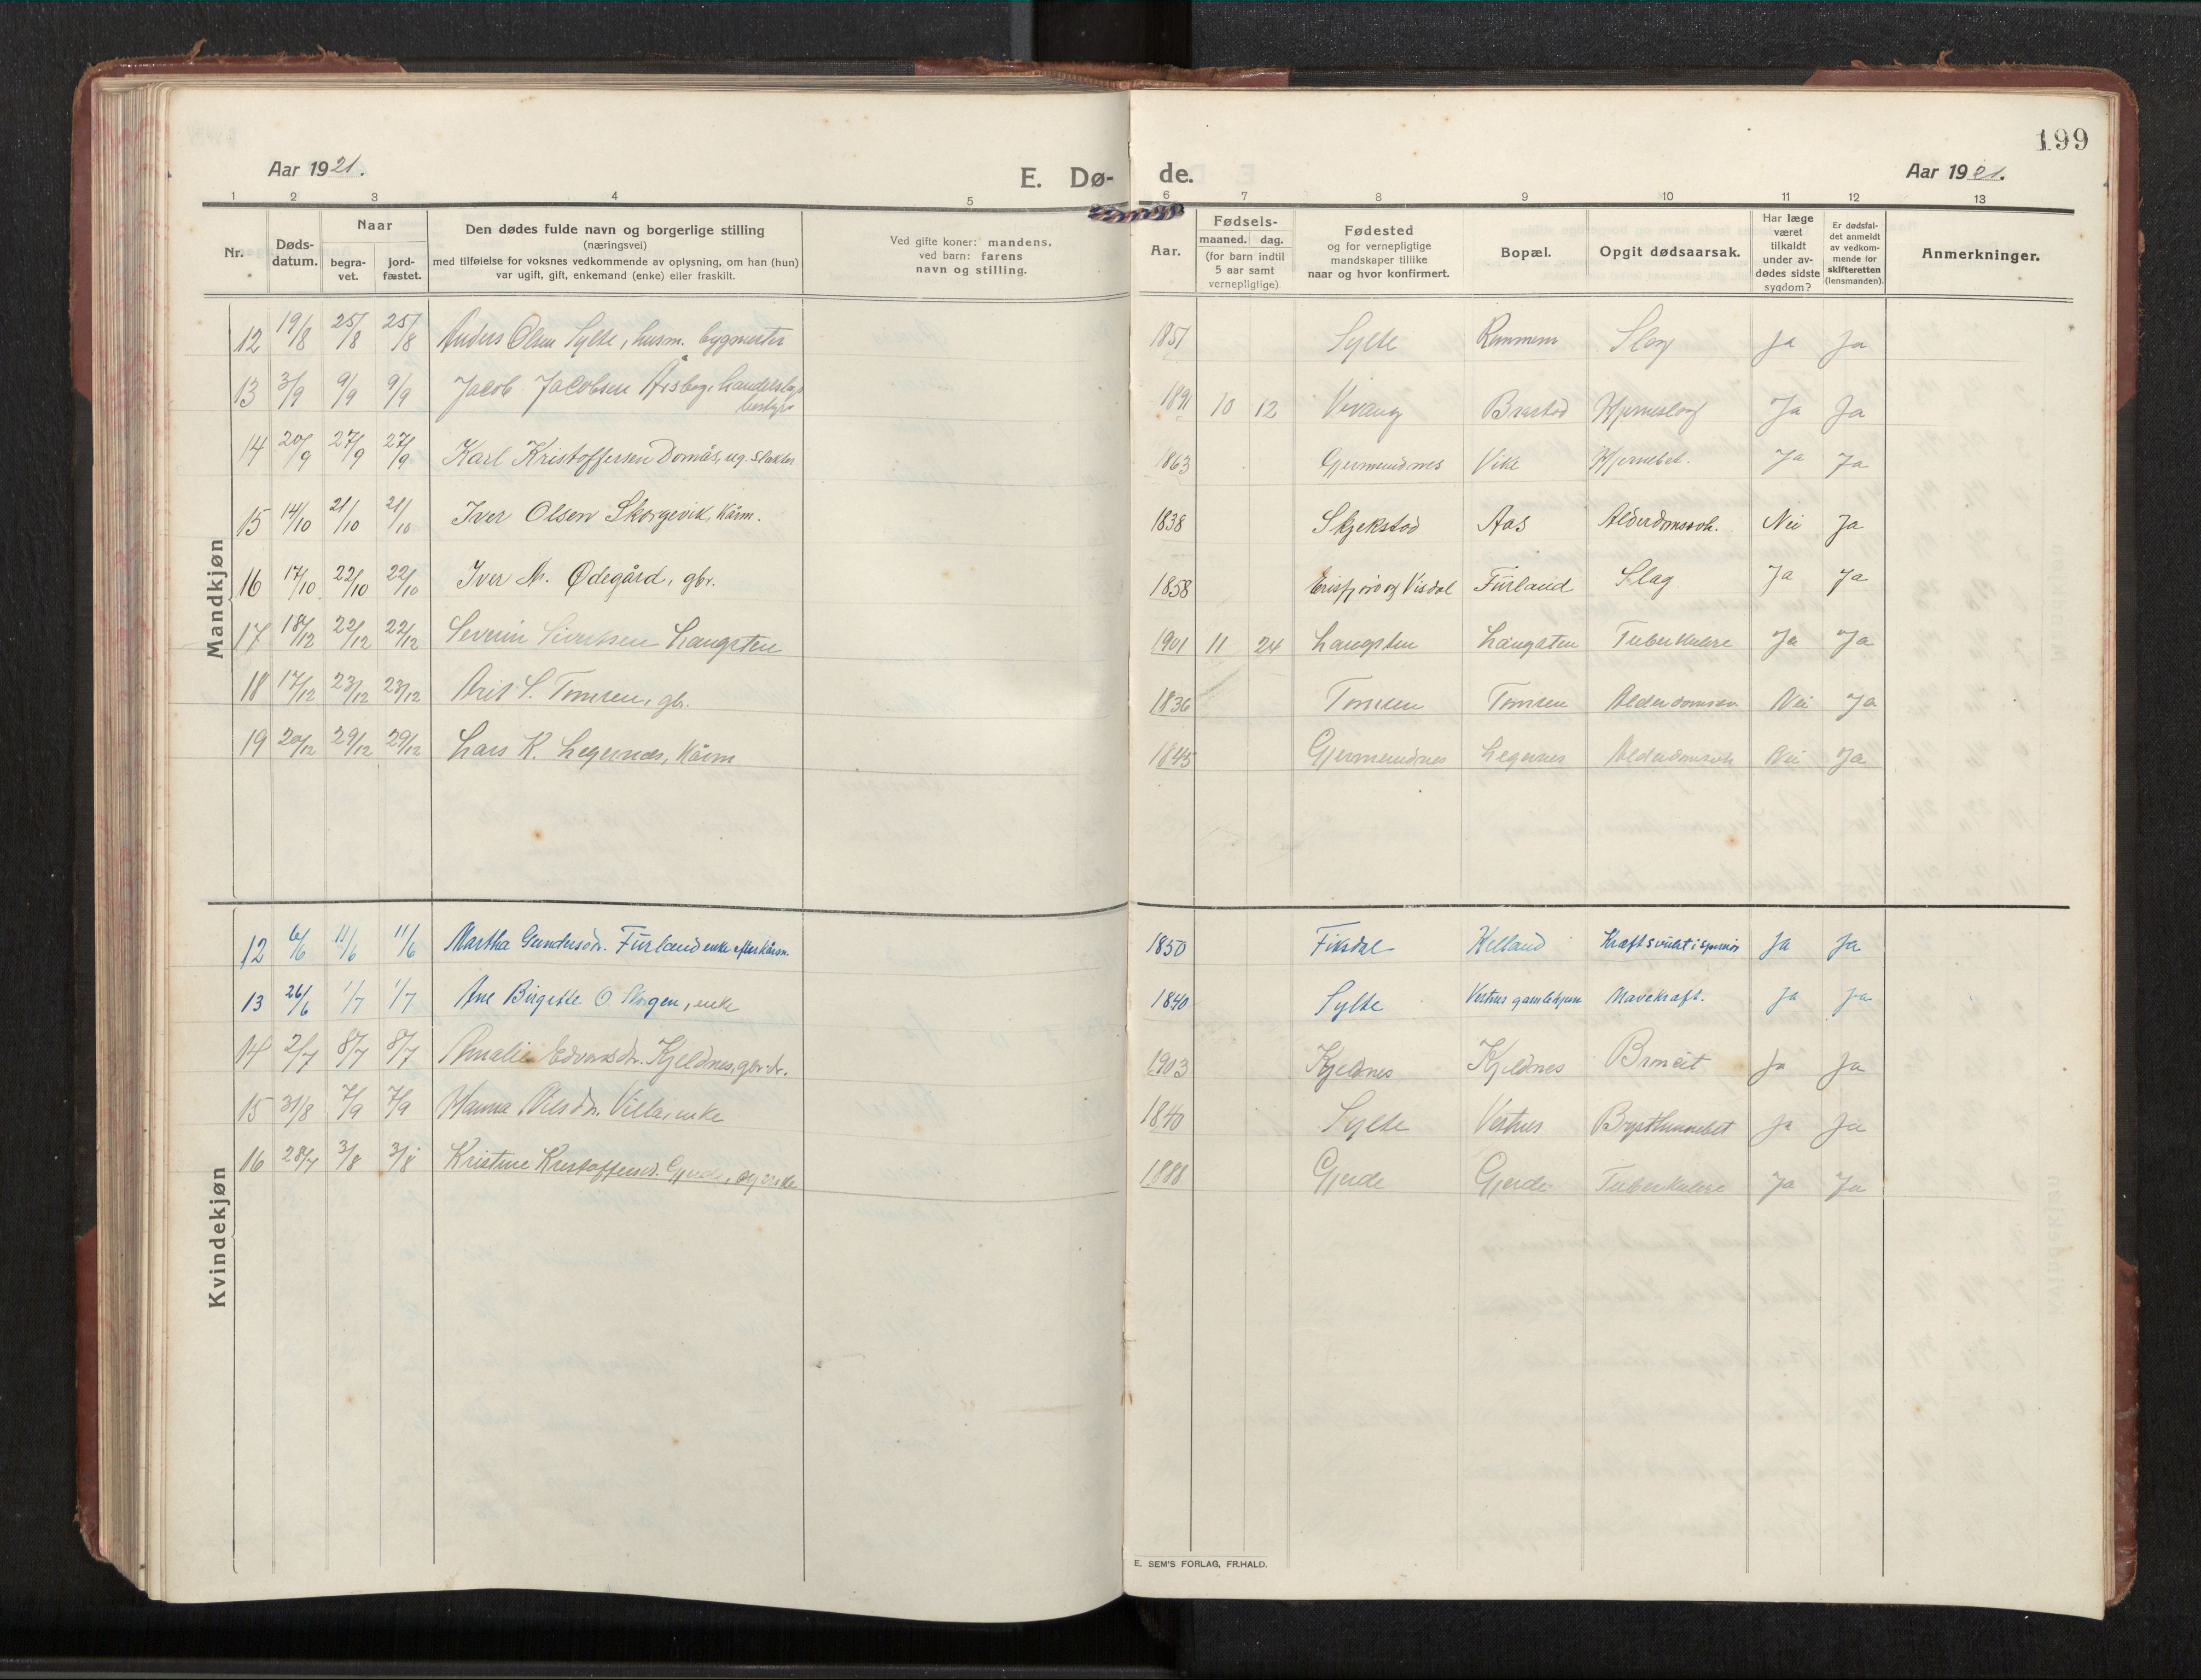 199
Aar 1921.
E. Dø-
de.
Aar 1921.
1 2 3 4 5 6 7 8 9 10 11 12 13
Nr.
Døds-
datum.
Naar
begra-
vet.
jord-
fæstet.
Den dødes fulde navn og borgerlige stilling
(næringsvei)
med tilføielse for voksnes vedkommende av oplysning, om han (hun)
var ugift, gift, enkemand (enke) eller fraskilt.
Ved gifte koner: mandens,
ved barn: farens
navn og stilling.
Aar.
Fødsels-
maaned. dag.
(for barn indtil
5 aar samt
vernepligtige)
Fødested
og for vernepligtige
mandskaper tillike
naar og hvor konfirmert.
Bopæl.
Opgit dødsaarsak.
Har læge
været
tilkaldt
under av-
dødes sidste
sygdom?
Er dødsfal-
det anmeldt
av vedkom-
mende for
skifteretten
(lensmanden).
Anmerkninger.
Mandkjøn
12 19/8 25/8 25/8 Anders Olsen Sylte, husm. bygmester 1851 Sylte Remmem Slag Ja Ja
13 3/9 9/9 9/9 Jacob Jacobsen 1891 10 12 Hjerneslag Ja Ja
14 20/9 27/9 27/9 Karl Kristoffersen Domås, ug. slakter 1863 Gjermundnes Vike Ja Ja
15 14/10 21/10 21/10 Iver Olsen Skorgevik, Kårm. 1838 Skjekstad Aas Alderdomssvk. Nei Ja
16 17/10 22/10 22/10 Iver M. Ødegård, gbr. 1858 Erisfjord og Visdal Furland Slag Ja Ja
17 18/12 22/12 22/12 Severin Sivertsen Langsten 1901 11 24 Langsten Langsten Tuberkulose Ja Ja
18 17/12 23/12 23/12 S. Tomren, gbr. 1836 Tomren Tomren Alderdomssv. Nei Ja
19 20/12 29/12 29/12 Lars K. Legernes, Kårm 1845 Gjermundnes Legernes Alderdomsvk Nei Ja
Kvindekjøn
12 6/6 11/6 11/6 Martha Gundersdr. Furland enke efter kårm. 1850 Fiksdal Helland Kræftsvulst i Ja Ja
13 26/6 1/7 1/7 Ane Birgitte O. enke 1840 Sylte Vestnes gamlehjem Mavekræft. Ja Ja
14 2/7 8/7 8/7 Amalie Edvardsdr. Kjeldnes, gbr. dr. 1903 Kjeldnes Kjeldnes Ja Ja
15 31/8 7/9 7/9 Hanna Nilsdr. Villa, enke 1840 Sylte Vestnes Brysthinnebet Ja Ja
16 28/7 3/8 3/8 Kristine Kristoffersd. Gjerde, 1888 Gjerde Gjerde Tuberkulose Ja Ja
E. SEM'S FORLAG, FR.HALD.